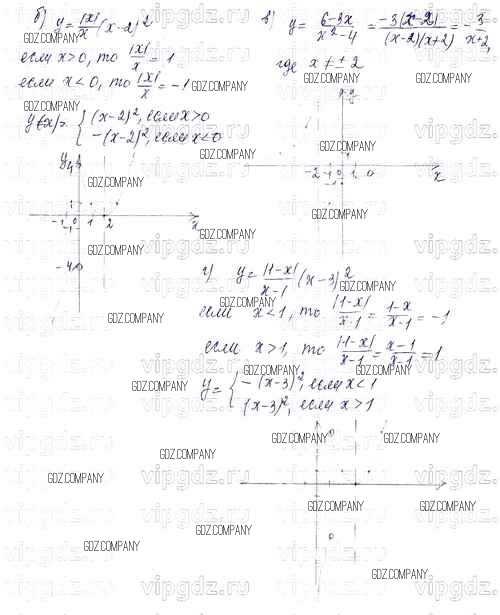 б) y = |x|/x (x-2)²
если x>0, то |x|/x = 1
если x<0, то |x|/x = -1
y(x) = { (x-2)², если x>0
-(x-2)², если x<0
y
4
-1 0 1 2 x
-1
-4
в) y = 6-3x/x²-4 = -3(x-2)/(x-2)(x+2) = -3/x+2,
где x ≠ ±2
y
-2 -1 0 1 x
-1
г) y = |1-x|/x-1 (x-3)²
если x<1, то |1-x|/x-1 = 1-x/x-1 = -1
если x>1, то |1-x|/x-1 = x-1/x-1 = 1
y = { -(x-3)², если x<1
(x-3)², если x>1
GDZ.COMPANY
vipgdz.ru